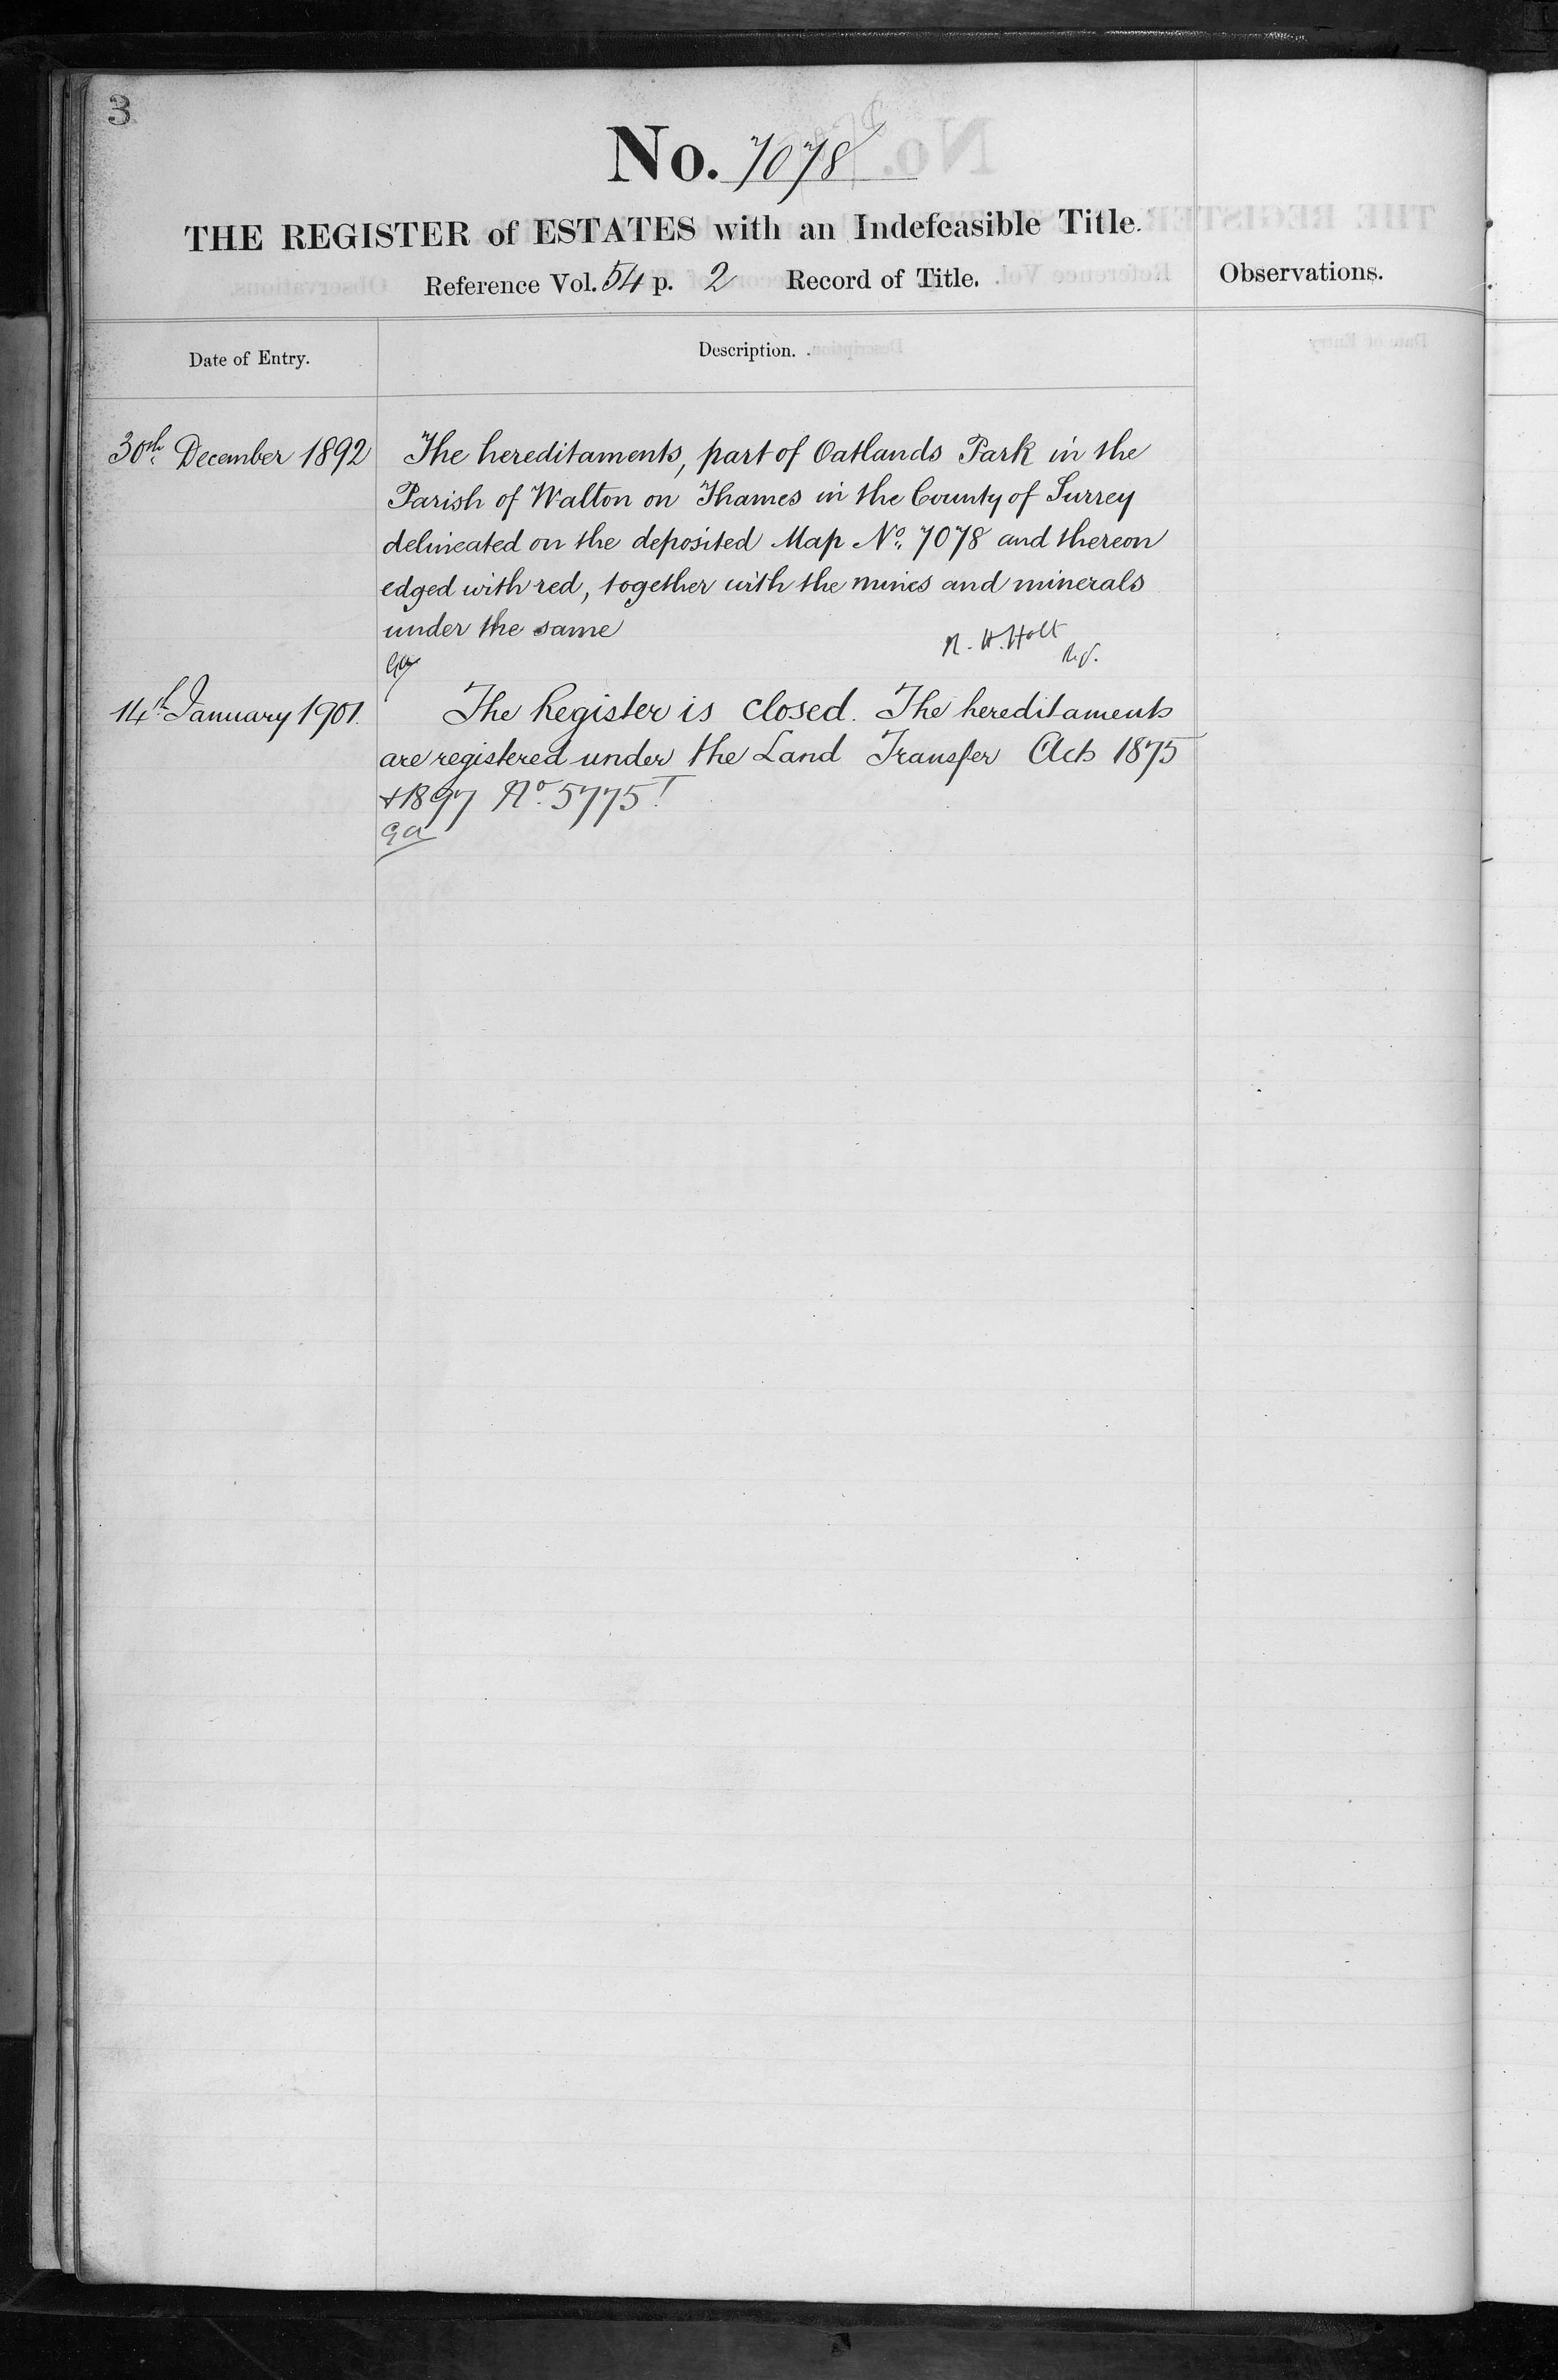 3
No. 7078
THE REGISTER of ESTATES with an Indefeasible Title.
Reference Vol. 54 p. 2 Record of Title.
Observations.
Date of Entry.
Description.
30th December 1892
The hereditaments, part of Oatlands Park in the
Parish of Walton on Thames in the County of Surrey
delineated on the deposited Map No. 7078 and thereon
edged with red, together with the mines and minerals
under the same
R. H. Holt
Regr.
14th January 1901.
The Register is closed. The hereditaments
are registered under the Land Transfer Acts 1875
& 1897 No. 5775
ga